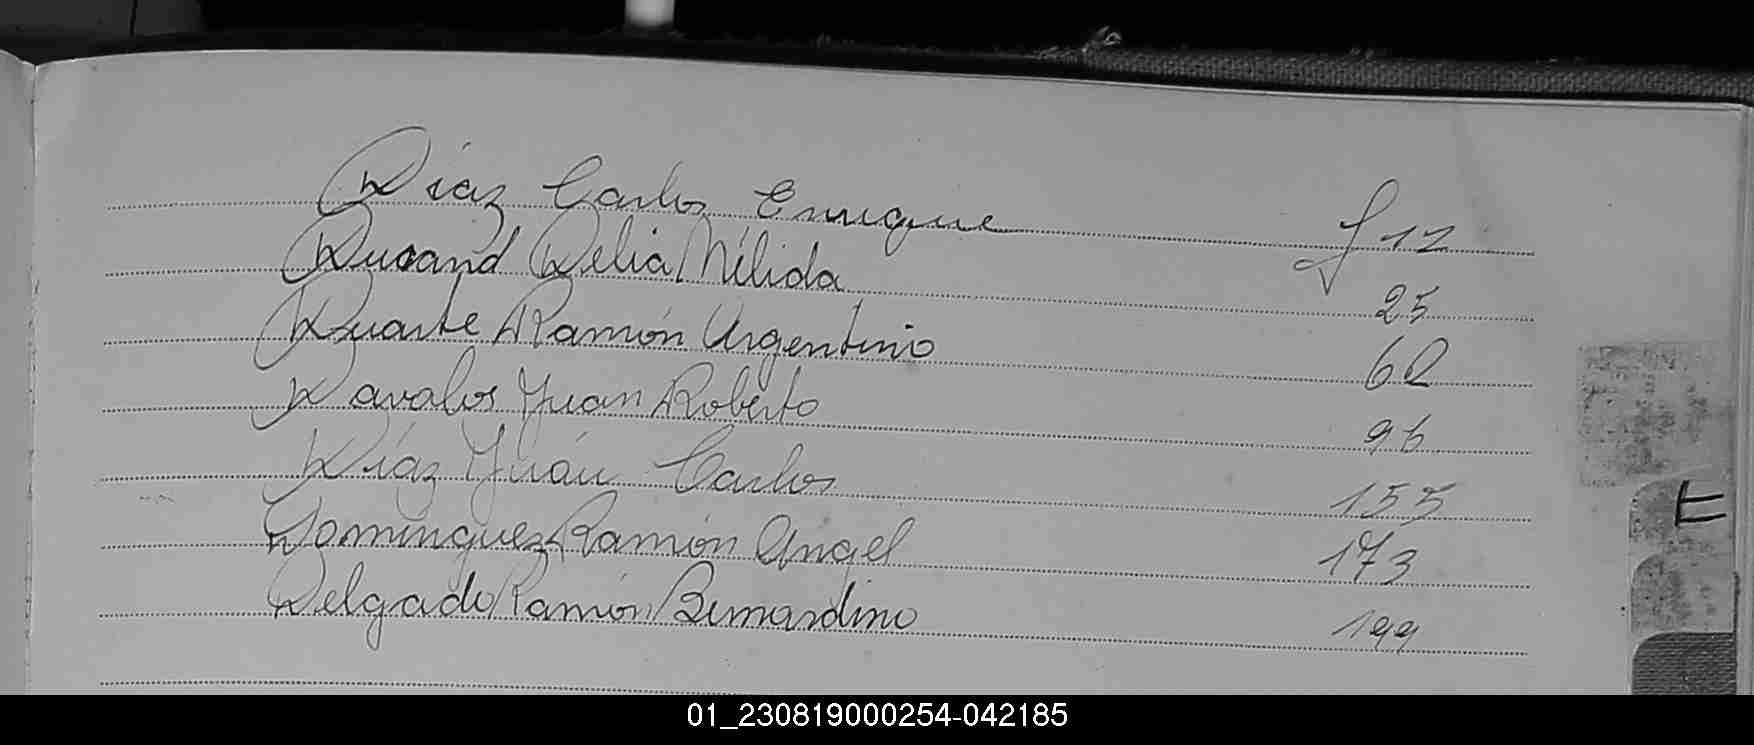 Díaz Carlos Enrique f 12
Durand Delia Nélida 25
Duarte Ramón Argentino 60
Davalos Juan Roberto 96
Díaz Juán Carlos 155
Dominguez Ramón Angel 173
Delgado Ramón Bernardino 199
E
01_230819000254-042185